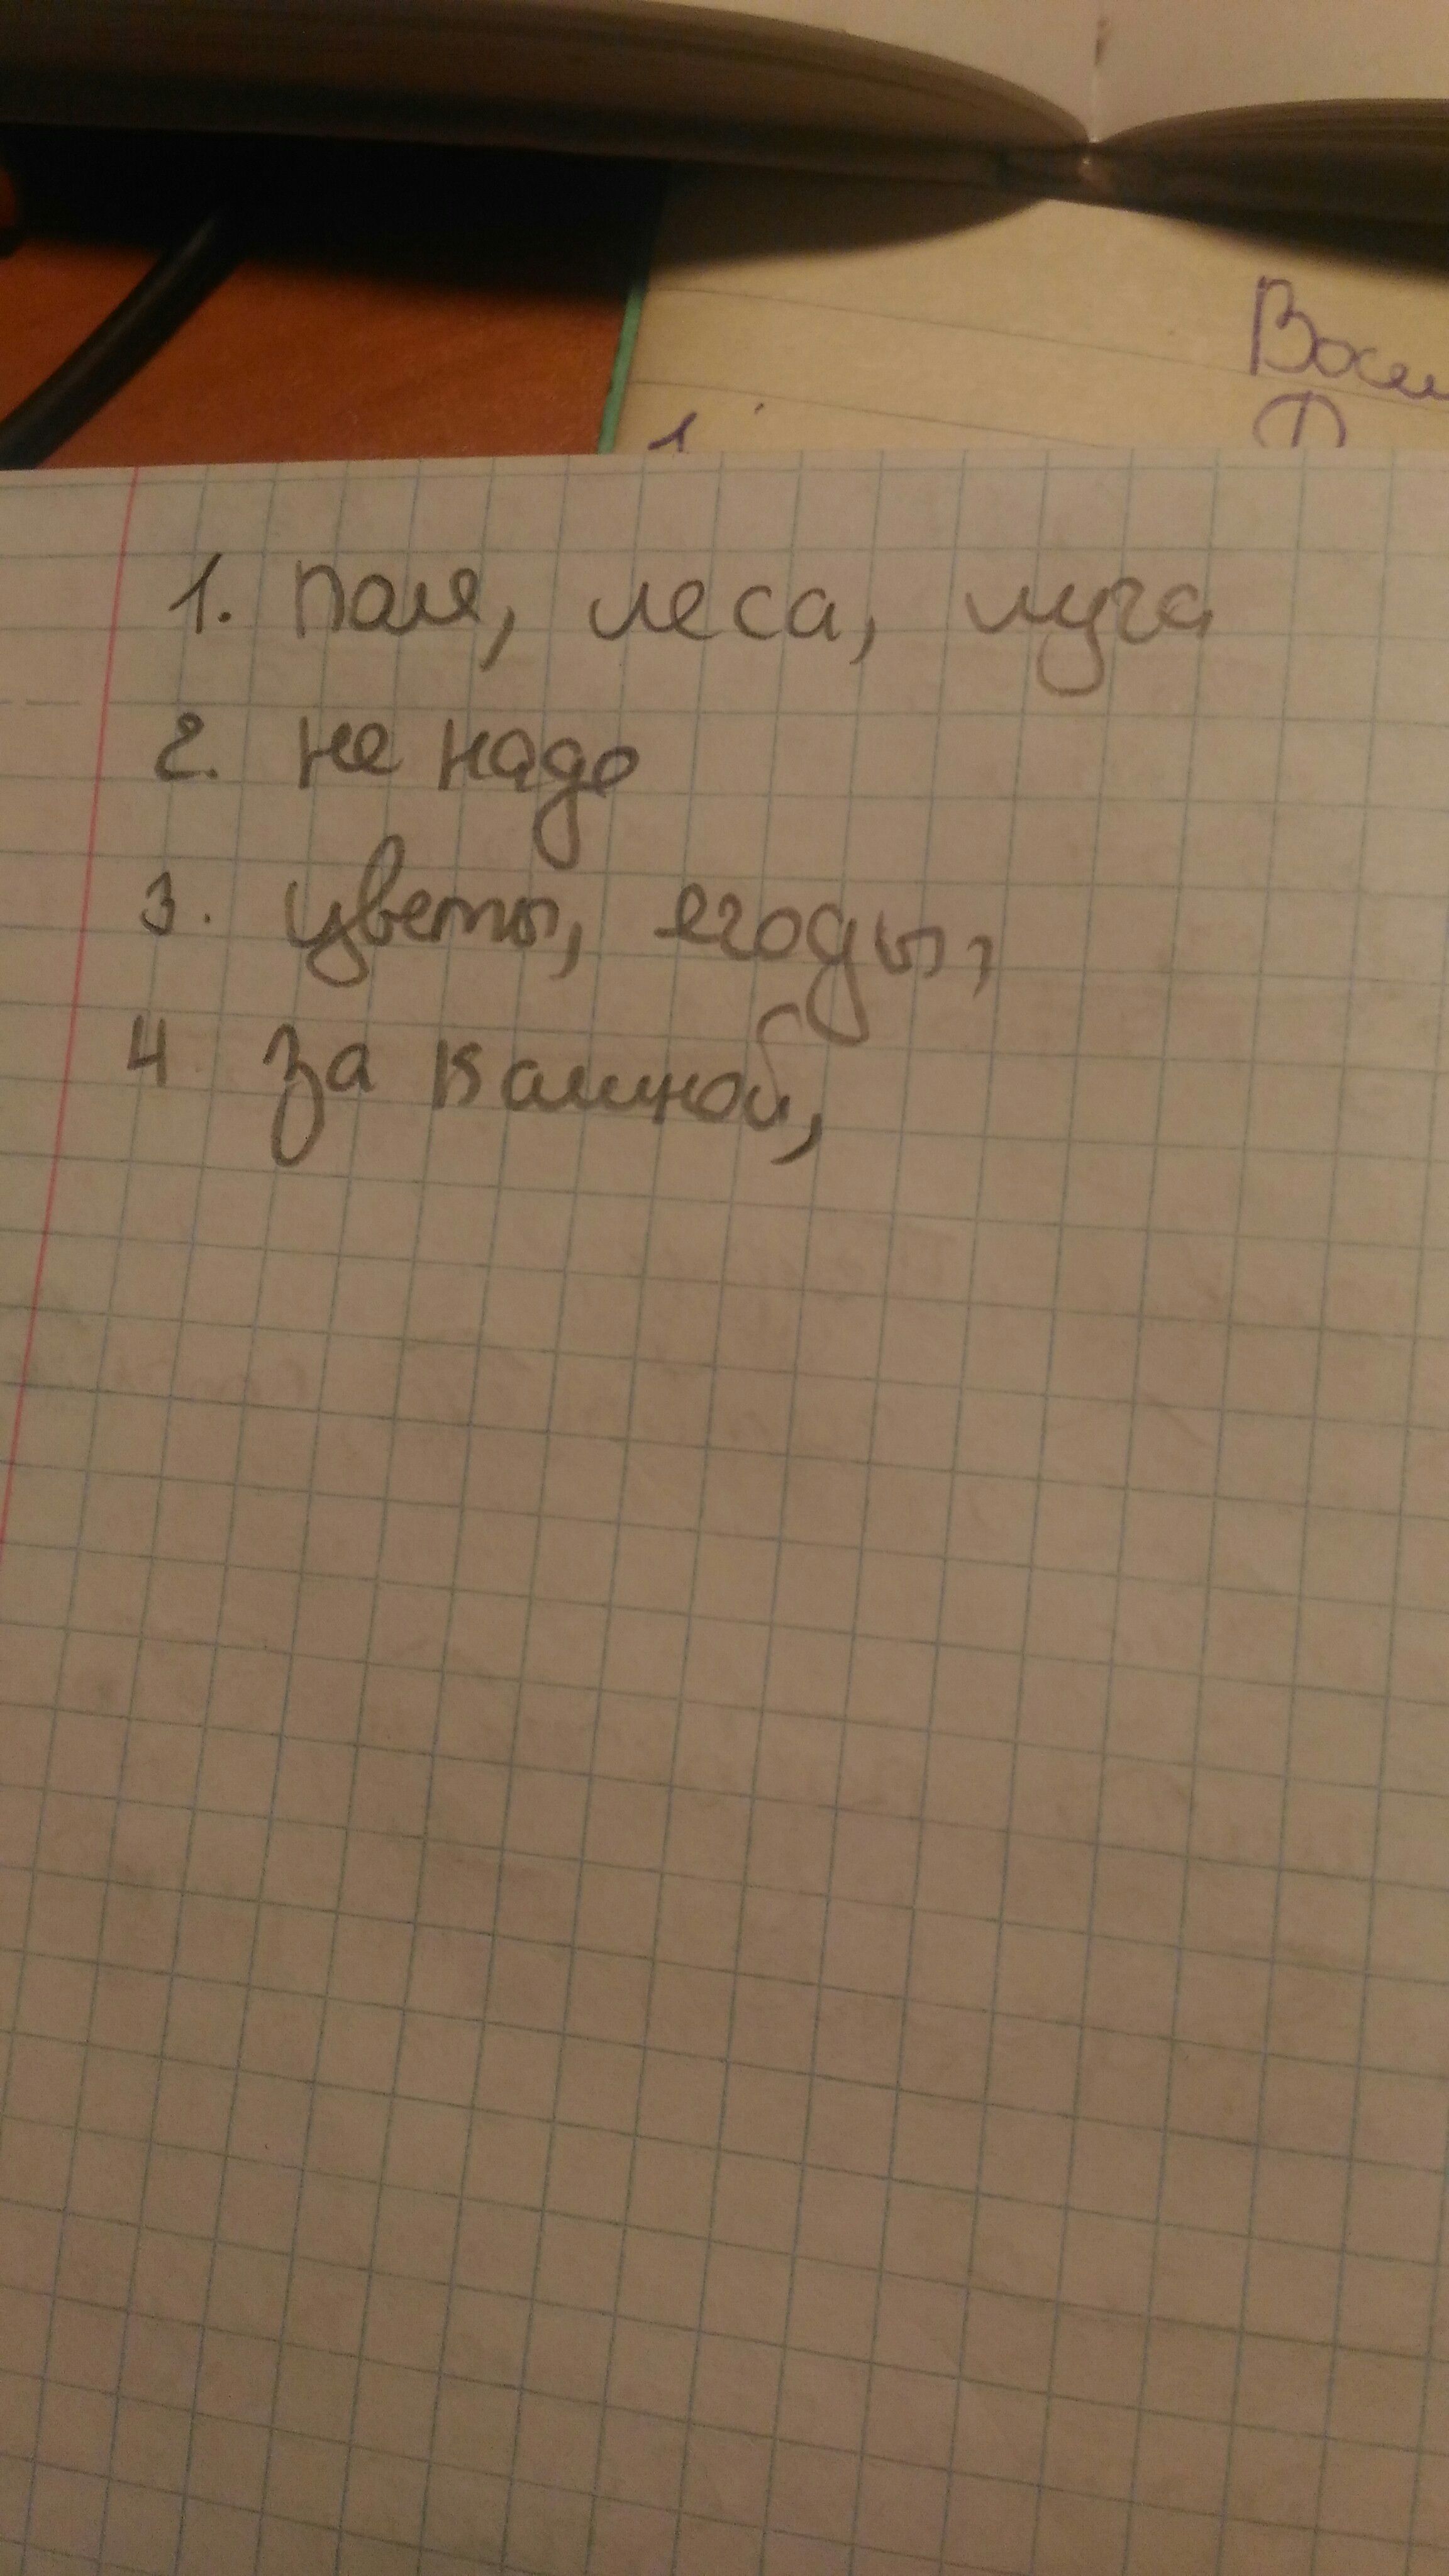 Восем
1.
1. поля, леса, луга
2. не надо
3. цветы, егоды,
4 за калиной,